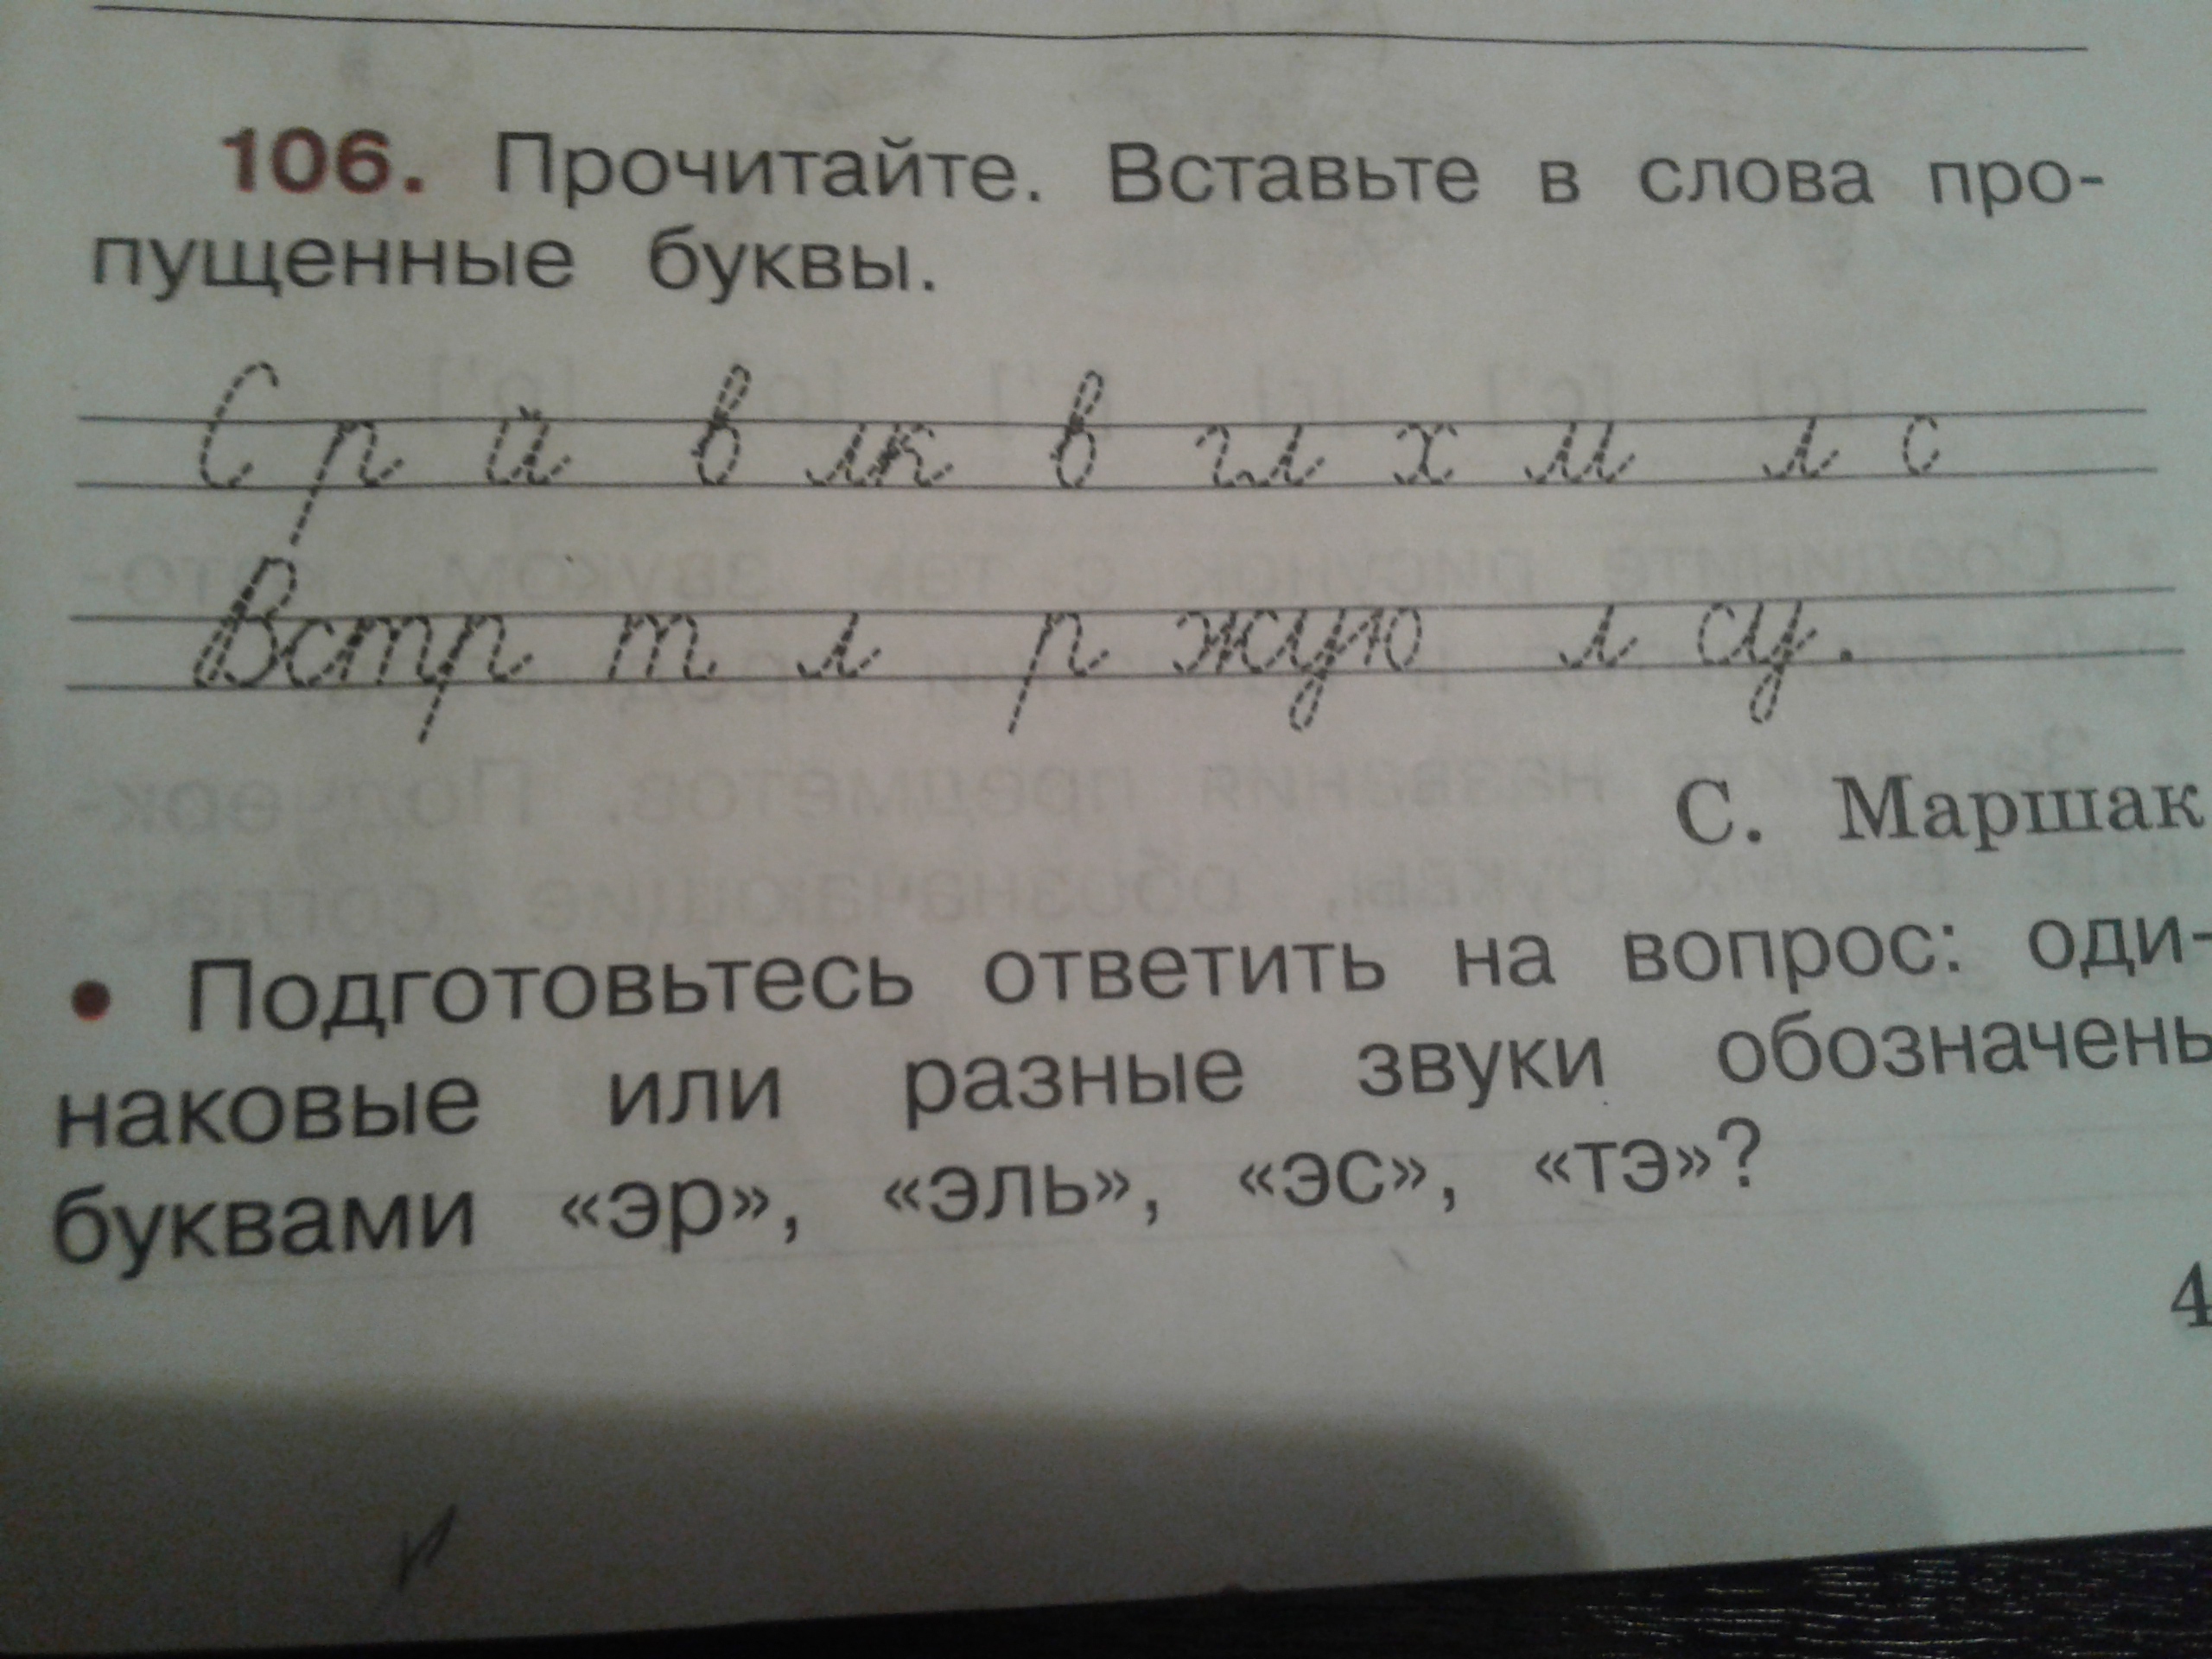 106. Прочитайте. Вставьте в слова про-
пущенные буквы.
С р й в лк в гл х м л с
Встр т л р жую л су.
С. Маршак
• Подготовьтесь ответить на вопрос: оди-
наковые или разные звуки обозначены
буквами «эр», «эль», «эс», «тэ»?
4